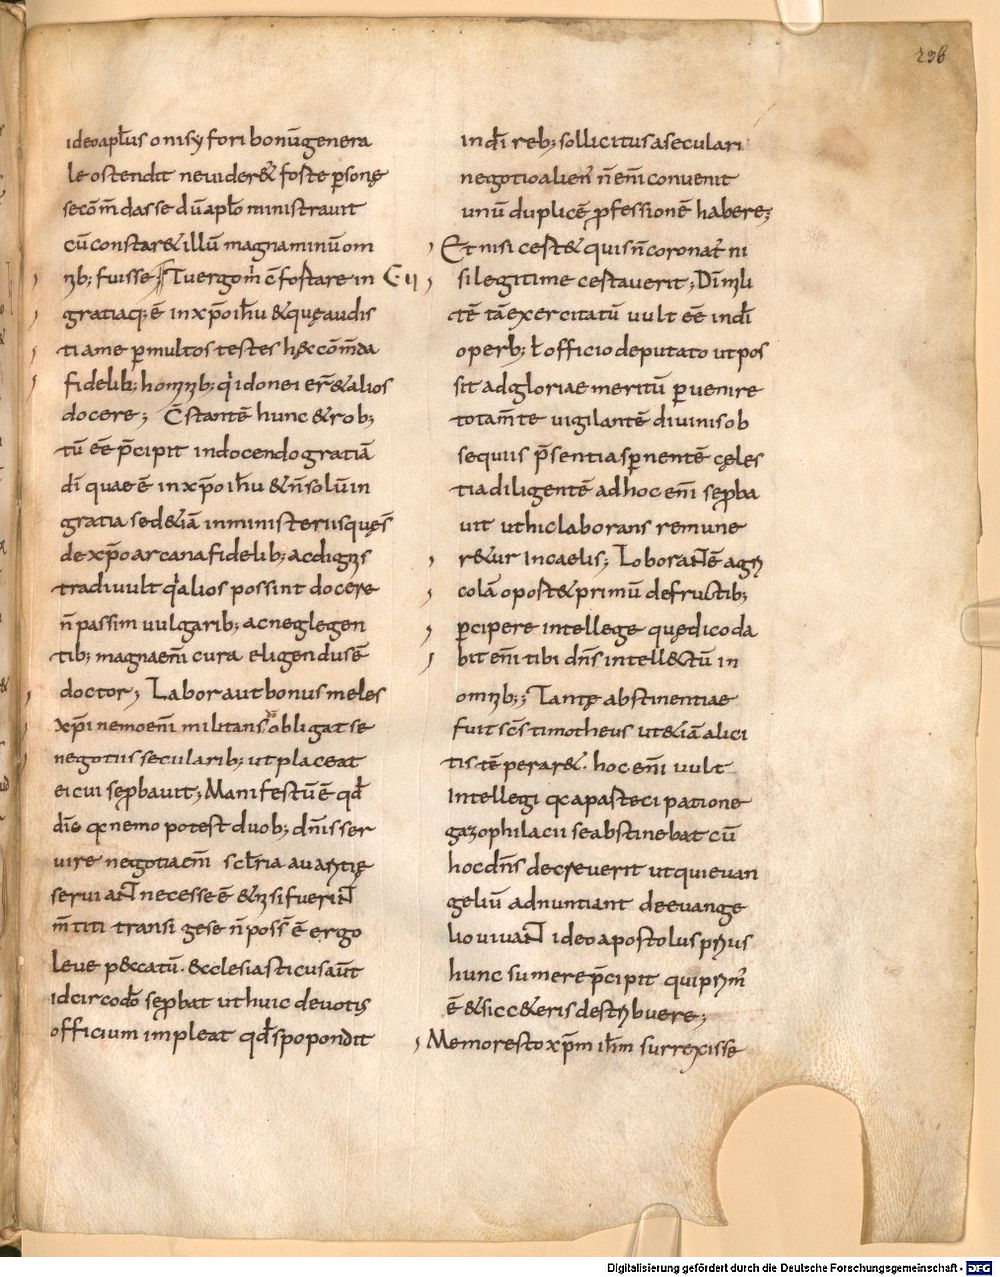 236
ideo apl̄us onisyfori bonū genera
le ostendit ne uideret̄ foste psonę
secōm̄dasse dū apl̄o ministrauit
cū constar& illū magnaminū om
nib; fuisse; Tu ergo m̄ c̄fostare in C· ii
gratia q; ē in xp̄o ih̄u & quę audis
ti a me p multos testes hęc cōm̄da
fidelib; hominib; qi idonei er̄ & alios
docere; C̄stantē hunc & rob;
tū eē p̄cipit in docendo gratiā
dī quae ē in xp̄o ih̄u & n̄ solū in
gratia sed &iā in ministeriis quęs̄
de xp̄o arcana fidelib; ac dignis
tradi uult qi alios possint docere
n̄ passim uulgarib; ac neglegen
tib; magna en̄i cura eligendus ē
doctor; Labora ut bonus meles
xp̄i nemo en̄i militans obligat se
negotiis secularib; ut placeat
ei cui se pbauit; Manifestū ē qđ
diē qc nemo potest duob; dn̄is ser
uire negotia en̄i scl̄ria auaritię
seruiaNT necesse ē & nisi fueriNT
m̄titi transigese n̄ poss̄ ē ergo
leue p&ccatū· &cclesiasticus aūt
idcirco dō se pbat ut huic deuotis
officium impleat qđ spopondit
in dī reb; sollicitus a seculari
negotio alien̄ n̄ en̄i conuenit
unū duplicē pfessionē habere;
Et nisi cest& quis n̄ coronat̄ ni
si legitime cestauerit; Dī mili
tē tā exercitatū uult eē in dī
operb; ł officio deputato ut pos
sit ad gloriae meritū puenire
tota m̄te uigilantē diuinis ob
sequiis p̄sentia spnentē cęles
tia diligentē ad hoc en̄i se pba
uit ut hic laborans remune
r&ur in caelis; LoboraNTē agri
colā oport& primū de fructib;
pcipere intellege quę dico da
bit en̄i tibi dn̄s intell&ctū in
omnib;; Tantę abstinentiae
fuit sc̄s timotheus ut &iā a lici
tis tēperar&· hoc en̄i uult
intellegi qc a pasteci patione
gazophilacii se abstinebat cū
hoc dn̄s decreuerit ut qui euan
geliū adnuntiant de euange
lio uiuaNT ideo apostolus prius
hunc sumere p̄cipit qui prim̄
ē & sic c&eris destribuere;
Memor esto xp̄m ih̄m surrexisse
Digitalisierung gefördert durch die Deutsche Forschungsgemeinschaft - DFG